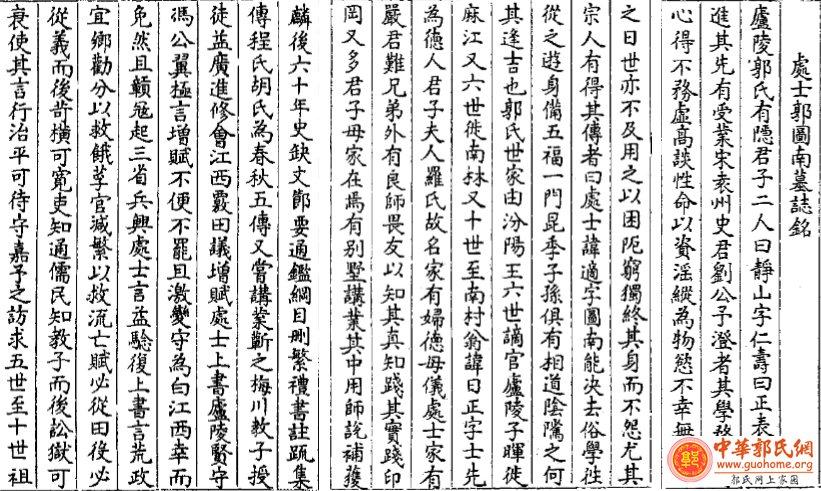 處士郭圖南墓誌銘
廬陵郭氏有隱君子二人曰靜山字仁壽曰正表
進其先有受業宋袁州史君劉公子澄者其學務
心得不務虛高談性命以資滛縱為物慾不幸無
之日世亦不及用之以困阨窮獨終其身而不怨尤其
宗人有得其傳者曰處士諱適字圖南能决去俗學徃
從之遊身備五福一門昆季子孫俱有相道陰隲之何
其逢吉也郭氏世家由汾陽王六世謫官廬陵子暉徙
麻江又六世徙南林又十世至南村翁諱日正字士先
為德人君子夫人羅氏故名家有婦德母儀處士家有
嚴君難兄弟外有良師畏友以知其真知踐其實踐印
岡又多君子母家在焉有别墅講業其中用師說補獲
麟後六十年史缺文節要通鑑綱目刪繁禮書註䟽集
傳程氏胡氏為春秋五傳又嘗講業斷之梅川教子授
徒益廣進修會江西覈田議增賦處士上書廬陵賢守
馮公翼極言增賦不便不罷且激變守為白江西幸而
免然且贛冦起三省兵興處士言益驗復上書言荒政
宜鄉勸分以救餓莩官減繁以救流亡賦必從田役必
從義而後苛横可寛吏知通儒民知教子而後訟獄可
衰使其言行治平可待守嘉予之訪求五世至十世祖
中華郭氏網
www.guohome.org
郭氏网上家園